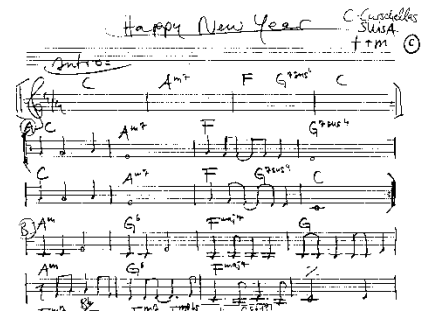 Happy New Year
C. Curschellas
SUISA
t + m ©
Intro:
C Am7 F G7sus4 C
A. C Am7 F G7sus4
C Am7 F G7sus4 C
B. Am G6 Fmaj7 G
Am G6 Fmaj7 ٪